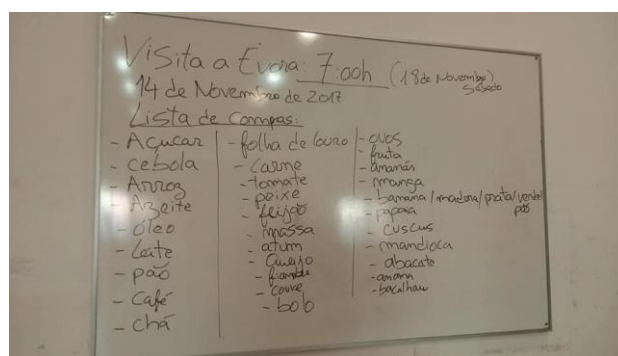 Visita a Évora: 7:00h (18 de Novembro)
Sábado
14 de Novembro de 2017
Lista de Compas:
- Açucar
- cebola
- Arroz
- Azeite
- óleo
- Leite
- pão
- Café
- chá
- folha de louro
- Carne
- tomate
- peixe
- feijão
- massa
- atum
- Queijo
- fiambre
- couve
- bob
- ovos
- fruta
- ananás
- manga
- banana/madura/prata/verde
pão
- papaia
- cuscus
- mandioca
- abacate
- bacalhau